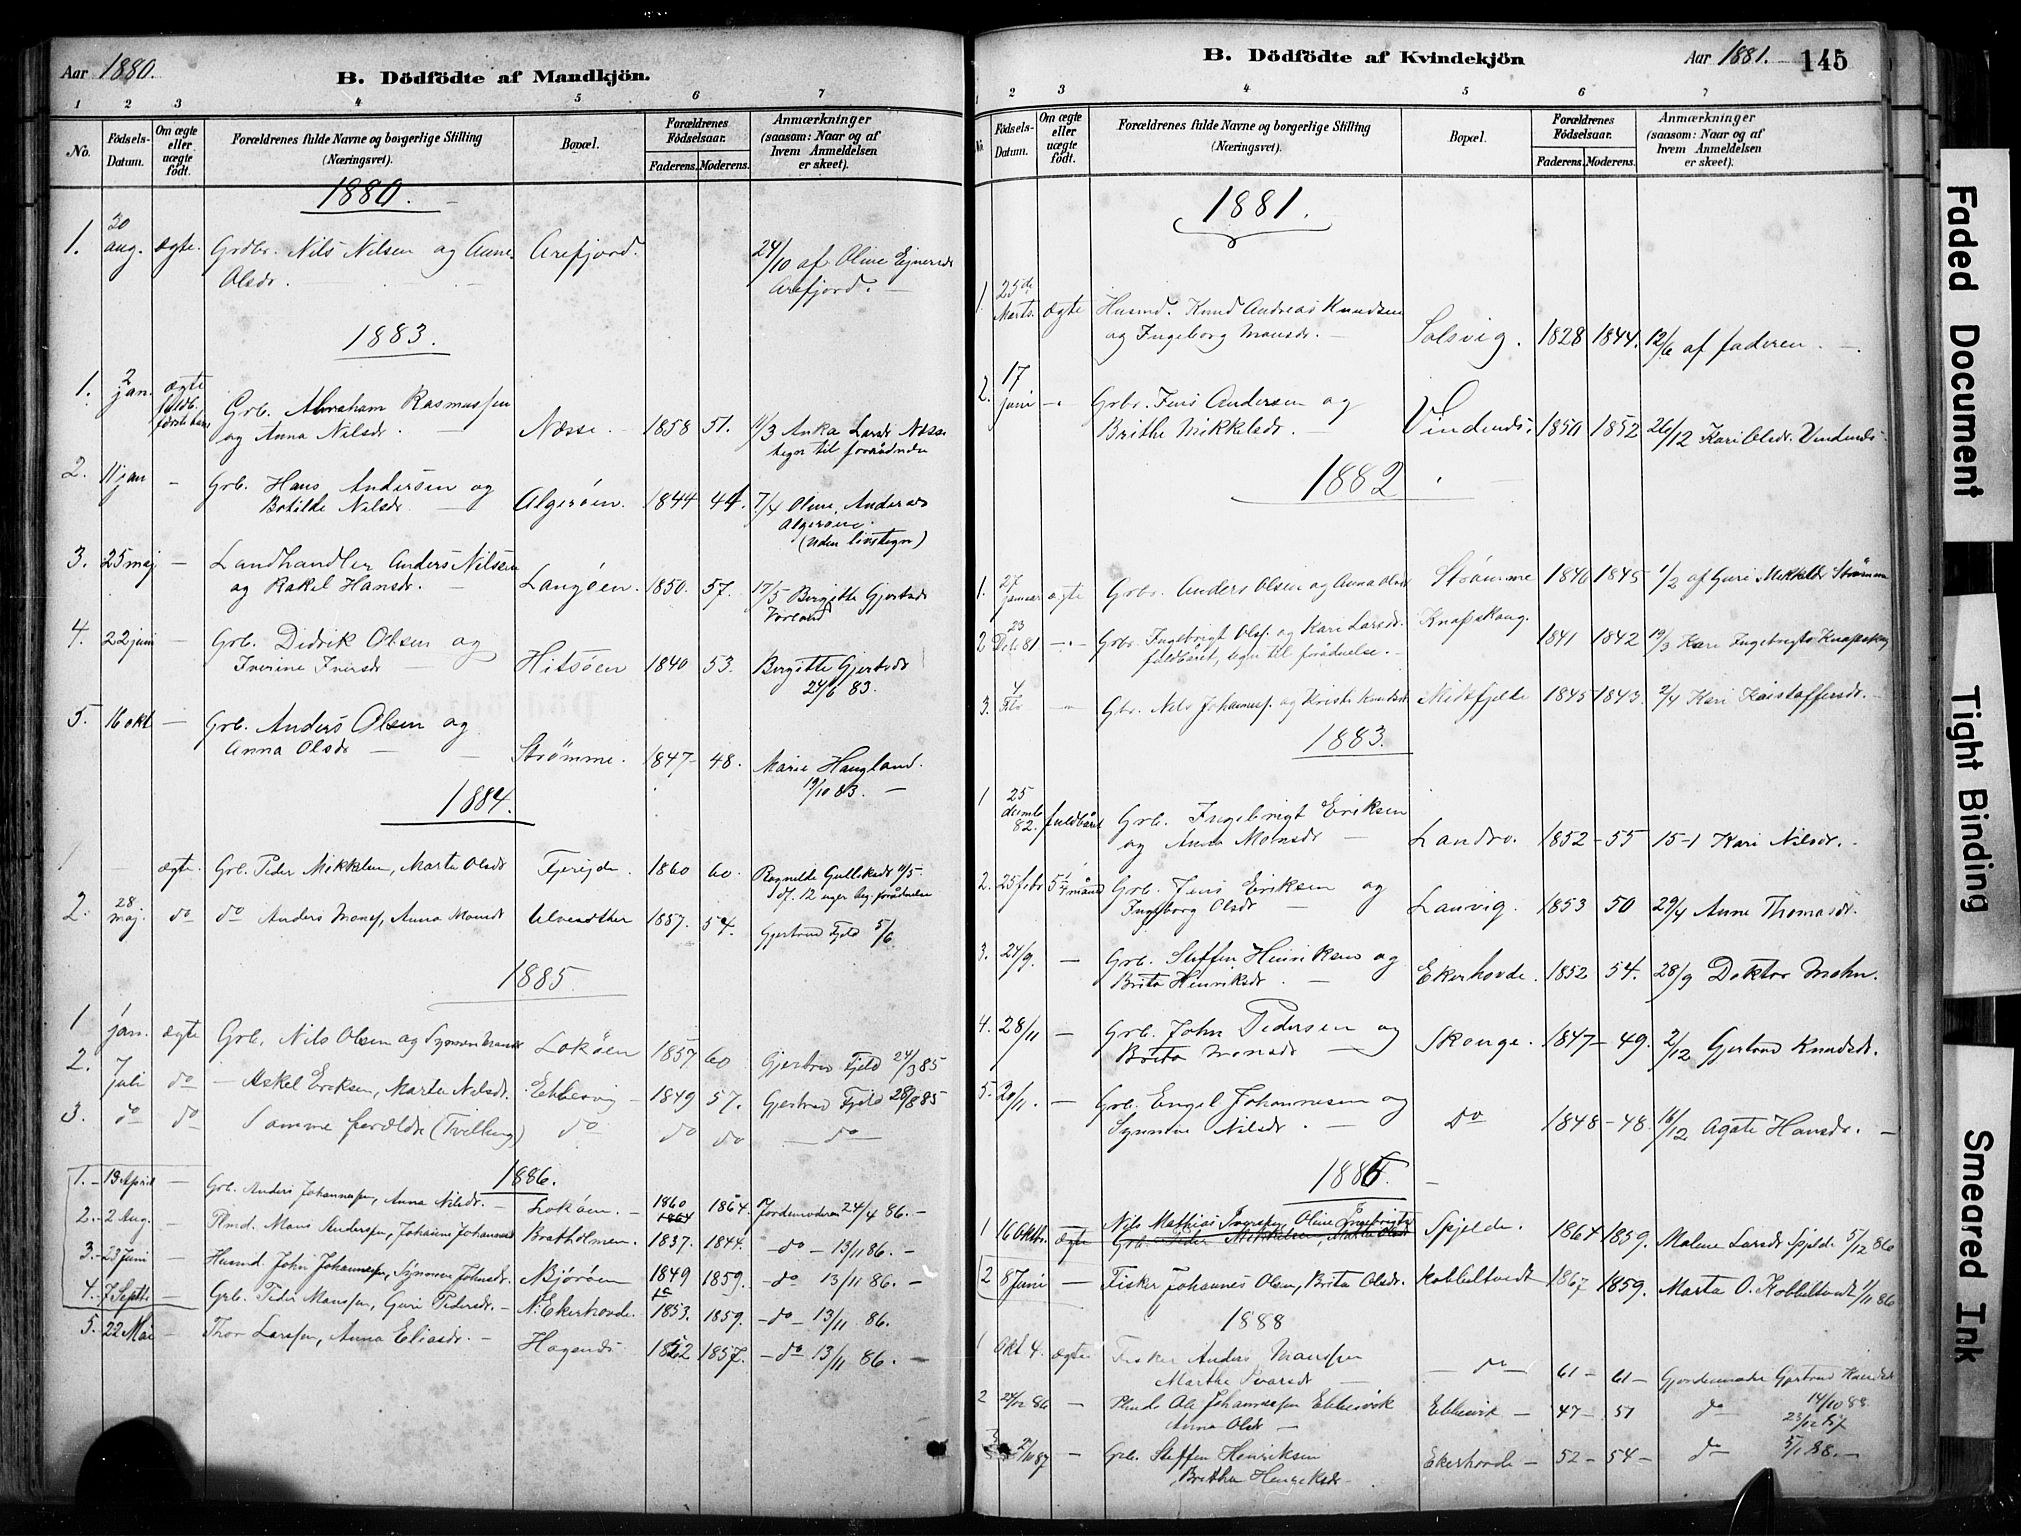 Aar 1880.
B. Dödfödte af Mandkjön.
1 2 3 4 5 6 7
No.
Födsels-Datum.
Om ægte eller uægte födt.
Forældrenes fulde Navne og borgerlige Stilling (Næringsvei).
Bopæl.
Forældrenes Födselsaar.
Faderens. Moderens.
Anmærkninger (saasom: Naar og af hvem Anmeldelsen er skeet).
1880.
1. 20 aug. ægte. Grdbr. Nils Nilsen og Anne Arefjord. 24/10 af Oline Ejnersdr
Olsdr. Arefjord.
1883.
1. 2 jan. ægte Grb. Abraham Rasmussen
og Anna Nilsdr. Næsse. 1858 51. 11/3 Anka Larsdr Næsse
tegn til
2. 11 jan - Grb. Hans Andersen og
Botilde Nilsdr. Algerøen. 1844 44 7/4 Oline Andersdr
Algerøen.
(uden livstegn)
3. 25 maj - Landhandler Anders Nilsen
og Rakel Hansdr. Langøen. 1850. 57. 17/5 Birgitte Gjertsdr
4. 22 juni - Grb. Didrik Olsen og
Iverine Iversdr Hitsøen 1840 53. Birgitte Gjertsdr
24/6 83.
5. 16 okt - Grb. Anders Olsen og
Anna Olsdr Strømme. 1847- 48. Marie Haugland.
19/10 83.
1884.
1 ægte. Grb. Peder Mikkelsen, Marta Olsdr 1860 60. Ragnilde Gulliksdr 11/5
2. 28 maj. do do Anders Monsen, Anna Monsdr 1857. 54. Gjertrud Fjeld 5/6
1885.
1 jan. ægte Grb. Nils Olsen og Lokøen 1857 60 Gjertrud Fjeld 24/3 85
2. 7 juli do - Askel Eriksen, Marta Nilsdr. Ebbesvig 1849 57. Gjertrud Fjeld 28/8 85
3. do do Samme forældre (Tvilling) do do do - do -
1886.
1. - 13 April - Grb. Anders Johannessen, Anna Nilsdr. - Lokøen. - 1860 1864. Jordemoderen 24/4 86. -
2. - 2 Aug. - Plmd. Mons Anderssen, Johanne Johannesdr Bratholmen. 1837. 1844. - do - 13/11 86. -
3. - 23 Juni - Husmd. John Johannessen, Synneve Johnsdr. Bjørøen 1849 1859. - do 13/11 86. -
4. - 7 Septb. - Grb. Peder Monssen, Guri Pedersdr. - N. Ekerhovde. 1853. 1859. - do - 13/11 86.
5. 22 Mai - Thor Larssen, Anna Eliasdr. - Hagenes 1852 1857. - do 13/11 86. -
B. Dödfödte af Kvindekjön
Aar 1881. 145
1 2 3 4 5 6 7
No.
Födsels-Datum.
Om ægte eller uægte födt.
Forældrenes fulde Navne og borgerlige Stilling (Næringsvei).
Bopæl.
Forældrenes Födselsaar.
Faderens. Moderens.
Anmærkninger (saasom: Naar og af hvem Anmeldelsen er skeet).
1881.
1. 25de Marts. ægte Husmd. Knud Andreas Knudsen
og Ingeborg Monsdr. Solsvig. 1828 1844. 12/6 af faderen.
2. 17 juni -"- Grbr. Jens Andersen og
Brithe Mikkelsdr. Vindenes. 1850 1852 26/12 Kari Olsdr. Vindenes.
1882
1. 27 januar ægte Grbr. Anders Olsen og Anna Olsdr Strømme 1846 1845 1/2 af Guri Mikkelsdr Strømme
2 23 Dcb 81 -"- Grbr. Ingebrigt Olss. og Kari Larsdr. Knapskaug. 1841 1842 19/3 Kari Ingebrigtsdr Knapskaug
fuldbåret, tegn til forådnelse. -
3. 4 Feb -"- Gbr. Nils Johanness. og Kristi Knudsdr Midtfjeld 1845 1843. 2/4 Kari Kristoffersdr. -
1883.
1 25 decemb 82. fuldbåret Grb. Ingebrigt Eriksen
og Anna Monsdr Landro. 1852 - 55 15-1 Kari Nilsdr. -
2. 25 febr Grb. Jens Eriksen og
Ingeborg Olsdr Lauvig. 1853 50 29/4 Anne Thomasdr.
3. 24/9. - Grb. Steffen Henriksen og
Brita Henriksdr. Ekerhovde. 1852 54. 28/9 Doktor Mohn.
4. 28/11 - Grb. John Pedersen og
Brita Monsdr Skouge. 1847 - 49. 2/12 Gjertrud Knudsdr.
5. 20/11. - Grb. Engel Johannesen og
Synnøve Nilsdr. Do 1848 - 48. 16/12 Agate Hansdr. -
1886.
1 16 Oktbr. ægte Nils Mathias Iversen, Oline Ingebrigtsdr Spjelde. 1864 1859. Malene Larsdr Spjelde 5/12 86
Grb. Peder Mikkelsen, Marta Olsdr
2 8 Juni - Fisker Johannes Olsen, Brita Olsdr. Kobbeltvedt 1867 1859. Marta O. Kobbeltvedt 1/11 86
1888
1 Okt 4. ægte Fisker Anders Monssen
Marthe Ivarsdr - do - 61 - 61 - Gjordemoder Gjertrud Knudsdr
14/10 88
2 24/12 86 - Plmd. Ole Johannessen Ebbesvik Ebbesvik - 47 - 51 do 23/12 87
Anna Olsdr -
3 2/11 87 - Grb. Steffen Henriksen
Brithe Ekerhovde - 52 - 54 - do 5/1 88. -
Faded Document
Tight Binding
Smeared Ink